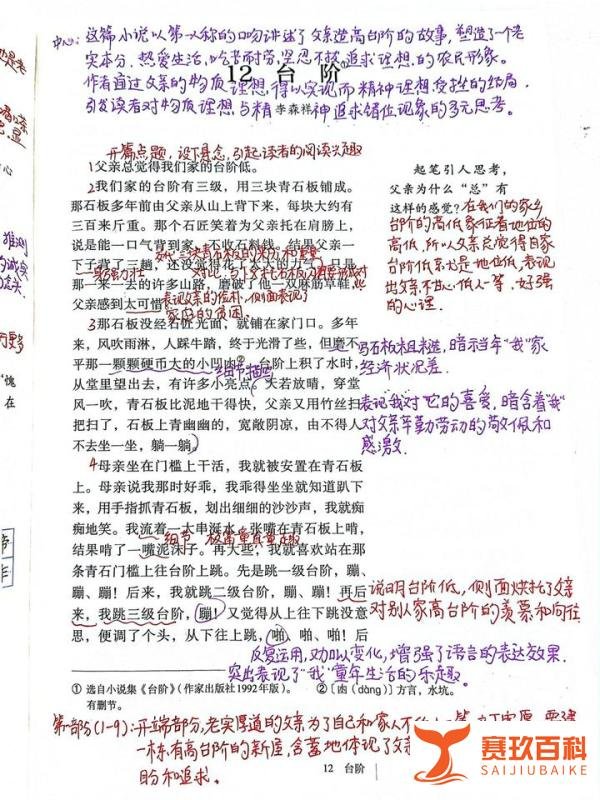 中心：这篇小说以第一人称的口吻讲述了父亲造高台阶的故事，塑造了一个老
实本分、热爱生活，吃苦耐劳，坚忍不拔，追求理想的农民形象。
12 台 阶
作者通过父亲的物质理想，得以实现而精神理想受挫的结局，
李森祥
引发读者对物质理想与精神追求错位现象的多元思考。
开篇点题，设下悬念，引起读者的阅读兴趣
1父亲总觉得我们家的台阶低。
2我们家的台阶有三级，用三块青石板铺成。
那石板多年前由父亲从山上背下来，每块大约有
三百来斤重。那个石匠笑着为父亲托在肩膀上，
说是能一口气背到家，不收石料钱。结果父亲一
下子背了三趟，还没觉得花了太大的力气。只是
那一来一去的许多山路，磨破了他一双麻筋草鞋，
父亲感到太可惜。
表现父亲的俭朴，侧面表现了
家庭的贫困。
3那石板没经石匠光面，就铺在家门口。多年
来，风吹雨淋，人踩牛踏，终于光滑了些，但磨不
平那一颗颗硬币大的小凼②。台阶上积了水时，
细节描写
从堂里望出去，有许多小亮点。天若放晴，穿堂
风一吹，青石板比泥地干得快，父亲又用竹丝扫
把扫了，石板上青幽幽的，宽敞阴凉，由不得人
不去坐一坐，躺一躺。
4母亲坐在门槛上干活，我就被安置在青石板
上。母亲说我那时好乖，我乖得坐坐就知道趴下
来，用手指抓青石板，划出细细的沙沙声，我就痴
痴地笑。我流着一大串涎水，张嘴在青石板上啃，
结果啃了一嘴泥沫子。再大些，我就喜欢站在那
条青石门槛上往台阶上跳。先是跳一级台阶，蹦、
蹦、蹦！后来，我就跳二级台阶，蹦、蹦！再后
来，我跳三级台阶，蹦！又觉得从上往下跳没意
思，便调了个头，从下往上跳，啪、啪、啪！后
起笔引人思考，
父亲为什么“总”有
这样的感觉？在我们的家乡
台阶的高低象征着地位的
高低，所以父亲总觉得自家
台阶低系就是地位低，表现
出父亲不甘心低人一等，好强
的心理。
写石板粗糙，暗示当年“我”家
经济状况差。
表现我对它的喜爱，暗含着“我”
对父亲辛勤劳动的敬佩和
感激。
说明台阶低，侧面烘托了父亲
对别人家高台阶的羡慕和向往
反复运用，加以变化，增强了语言的表达效果，
突出表现了“我”童年生活的乐趣。
① 选自小说集《台阶》（作家出版社1992年版）。
有删节。
② 〔凼（dàng）〕方言，水坑。
第一部分(1-9)：开端部分，老实厚道的父亲为了自己和家人
一栋有高台阶的新屋，含蓄地体现了父亲
盼和追求。
12 台阶
赛玖百科
SAIJIUBAIKE